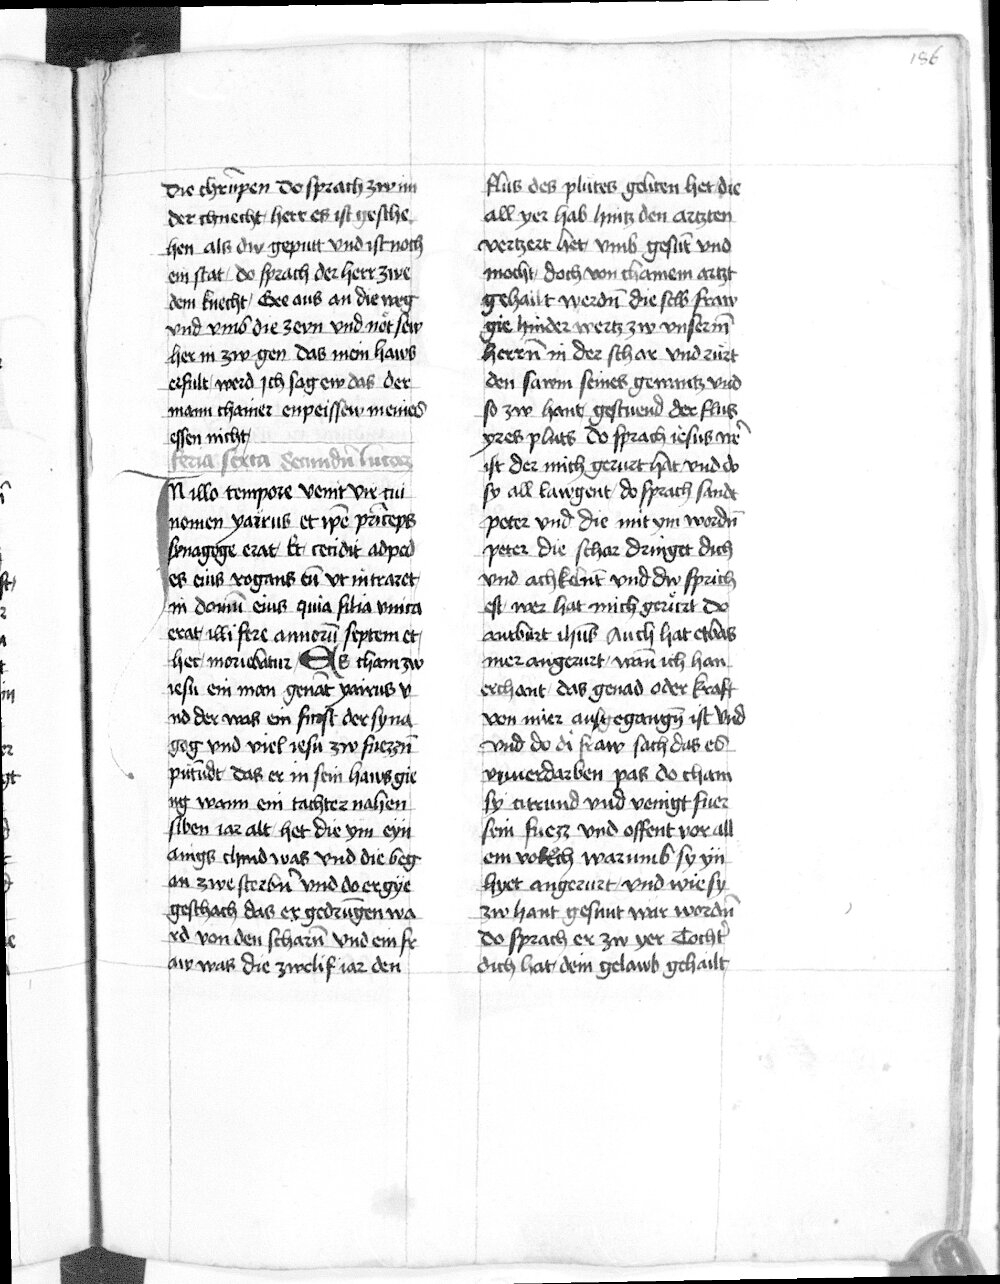 186
die chrüpen do sprach zw im
der chnecht herr es ist gesche
hen als dw geputt vnd ist noch
ein stat / do sprach der herr zwe
dem knecht / Gee aus an die weg
vnd vmb die zevn vnd nöt sew
her in zw gen das mein haws
erfult werd ich sag ew das der
mann chainer enpeissew meines
essen nicht /
feria sexta secundū lucaz
N illo tempore venit vir cui
nomen yairus et ipē prīceps
synagoge erat Et cecidit ad ped
es eius rogans eū vt intraret
in domū eius quia filia vnica
erat illi fere annorū septem et
hec moriebatur Es cham zw
iesu ein man genāt yairus v
nd der was ein fürst der syna
gog vnd viel iesu zw fuezzn̄
pittundt das er in sein haws gie
ng wann ein tachter nahen
siben iar alt het die ym eyn
anigs chind was vnd die beg
an zwe sterbn̄ vnd do er gye
geschach das er gedrūgen wa
rd von den scharn̄ vnd ein fr
aw was die zwelif iar den
flus des plutes geliten het die
all yer hab hintz den artzten
vertzert het vmb gesūt vnd
mocht doch von chainem artzt
gehailt werdn̄ die selb fraw
gie hinder wertz zw vnserm̄
herrn̄ in der schar vnd rürt
den sawm seines gewantz vnd
so zw hant gestuend der flus
yres pluts do sprach iesus wer
ist der mich gerurt hat vnd do
sy all lawgent do sprach sandt
peter vnd die mit ym wordn̄
peter die schar dringet dich
vnd vnd dw sprich
est wer hat mich gerürt do
antburt ihūs Auch hat etbas
mer angerurt wan̄ ich han
erchant das genad oder kraft
von mier aufgegangn̄ ist vnd
vnd do di fraw sach das es
vnuerdarben pas do cham
sy citrund vnd venigt fuer
sein fuezz vnd offent vor all
em volkch warumb sy yn
hyet angerurt vnd wie sy
zw hant gesunt war wordn̄
do sprach er zw yer Tochter
dich hat dein gelawb gehailt